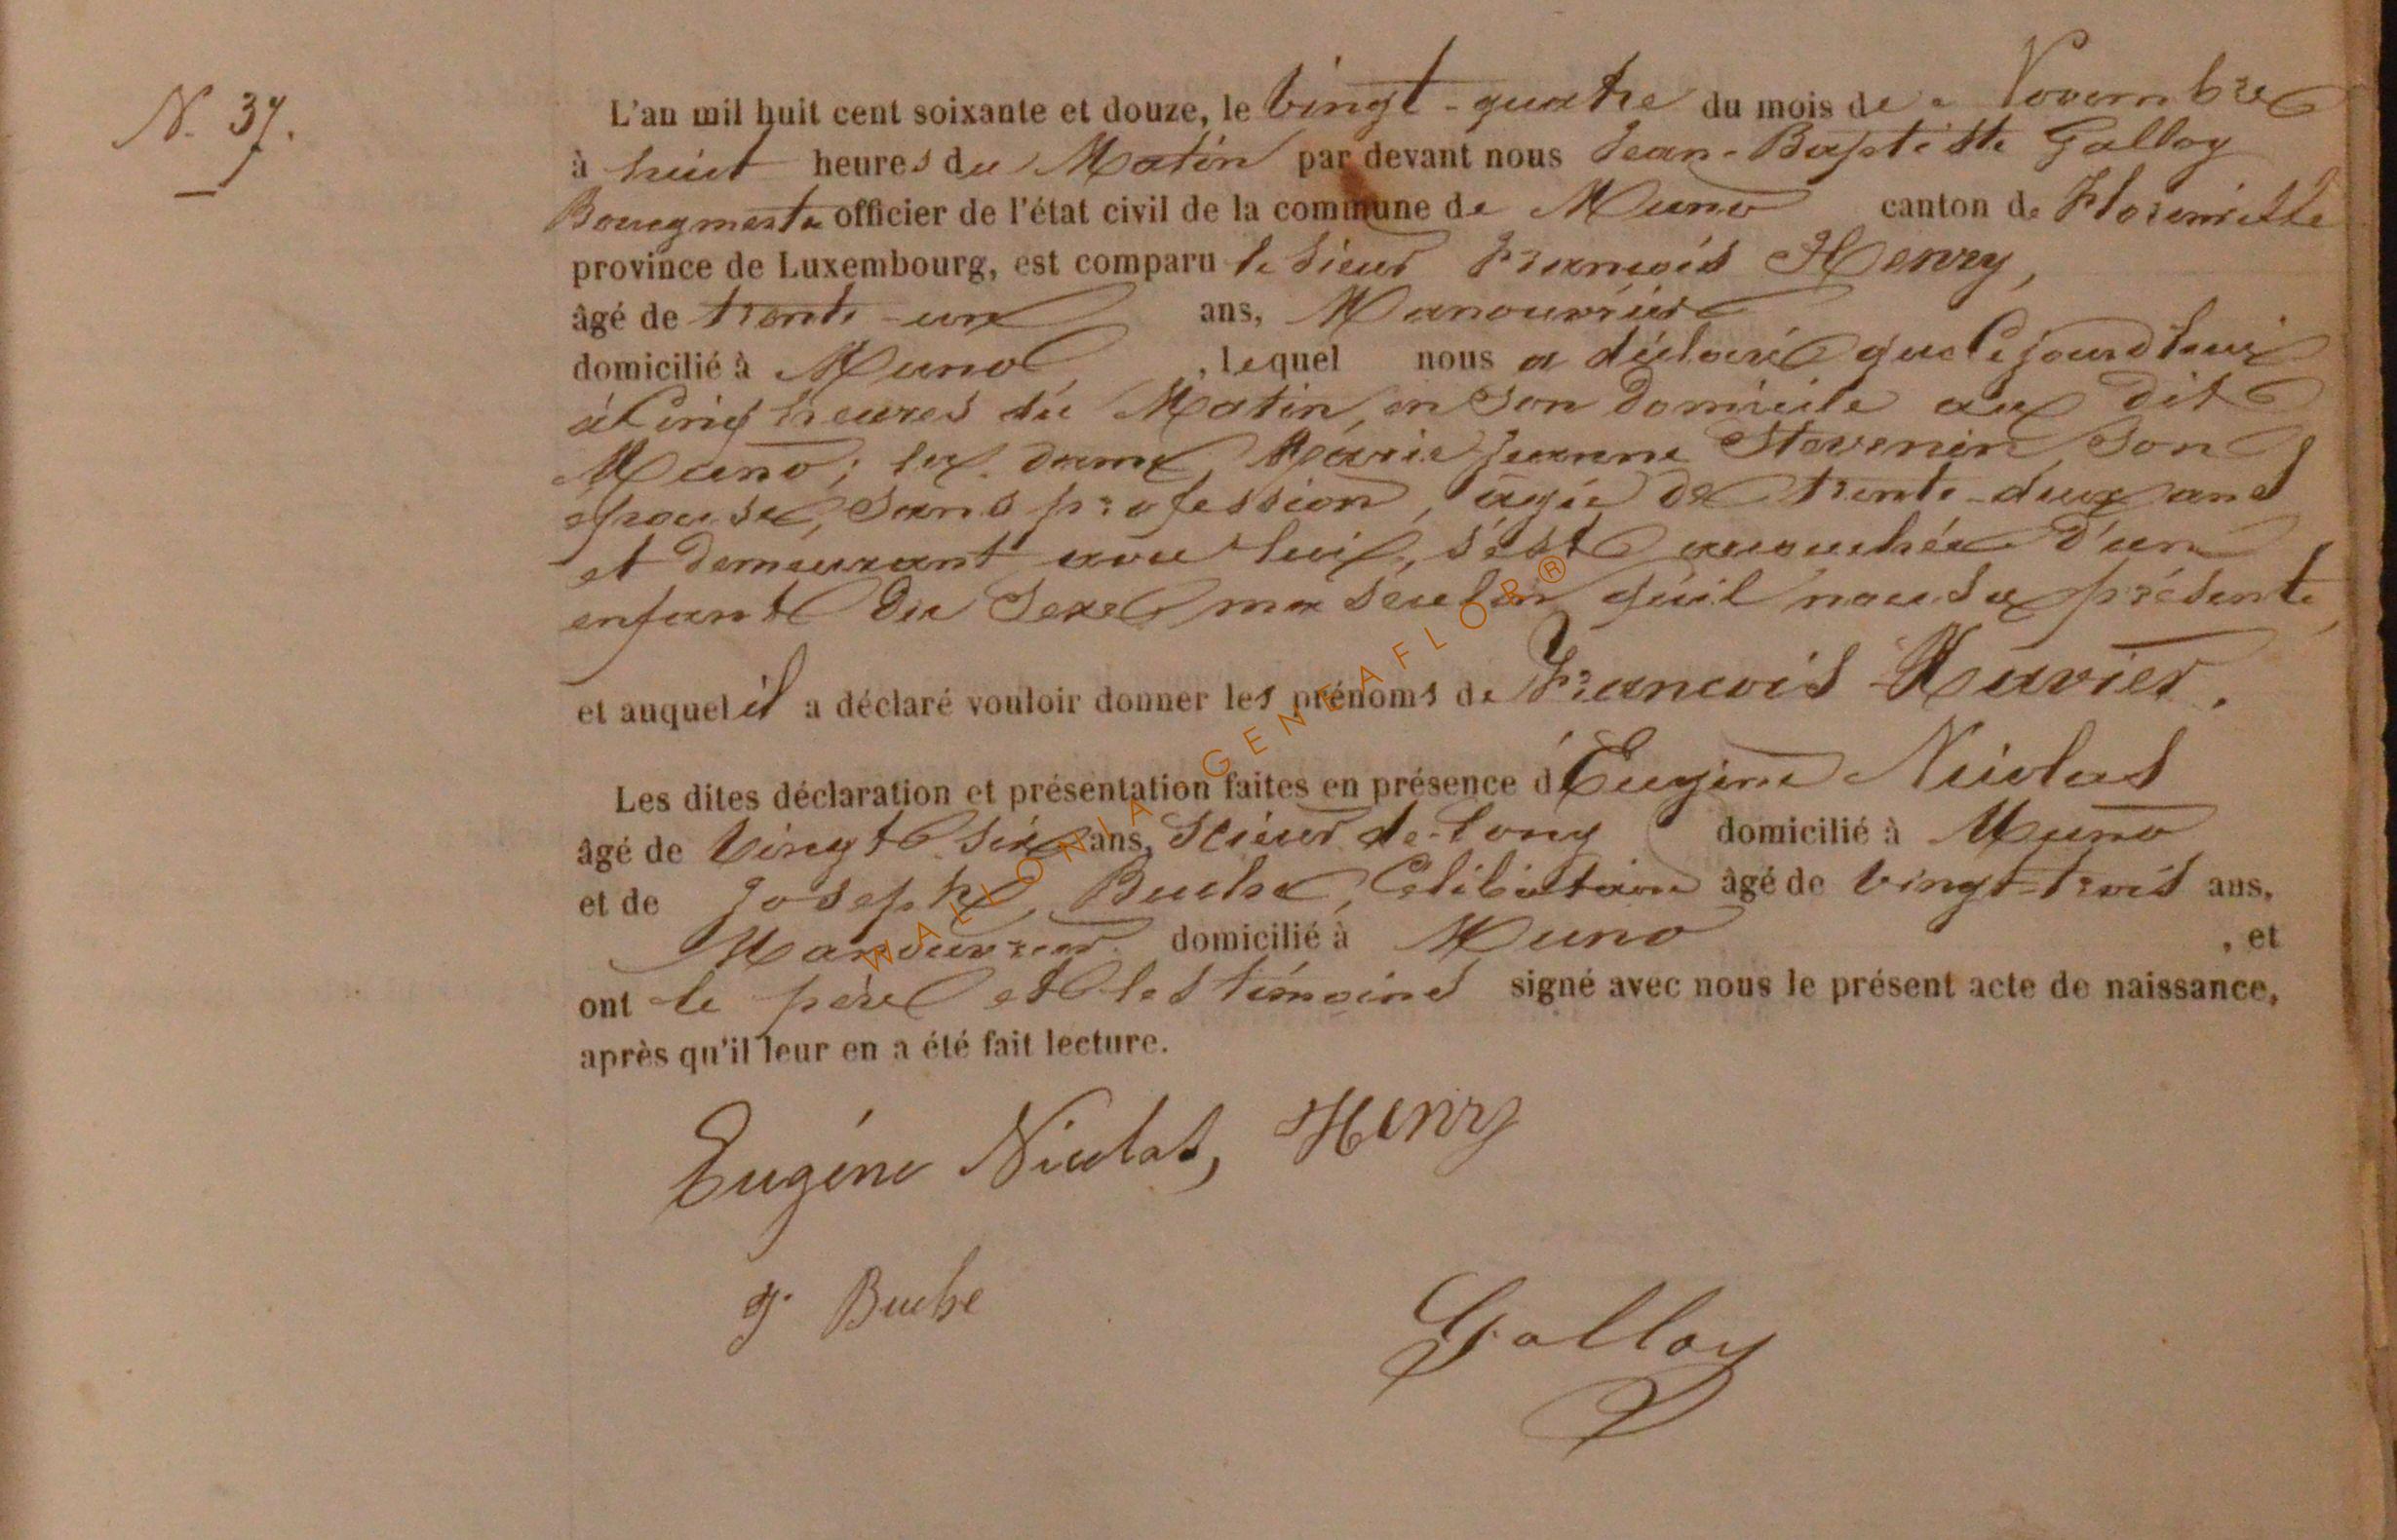 N. 37.
L'an mil huit cent soixante et douze, le vingt-quatre du mois de Novembre
à huit heures du Matin par devant nous Jean-Baptiste Galloy
Bourgmestre officier de l'état civil de la commune de Muno canton de Florenville
province de Luxembourg, est comparu le sieur François Henry,
âgé de trente-un ans, Manouvrier
domicilié à Muno, lequel nous a déclaré que Cejourd'hui
à Cinq heures du Matin, en son domicile au dit
Muno; la dame Marie Jeanne Stevenin son
épouse, sans profession, âgée de trente-deux ans
et demeurant avec lui, s'est accouchée d'un
enfant du sexe masculin qu'il nous a présenté,
et auquel il a déclaré vouloir donner les prénoms de François Xavier.
Les dites déclaration et présentation faites en présence d'Eugène Nicolas
âgé de vingt six ans, Scieur de-long domicilié à Muno
et de Joseph Buche, Célibataire âgé de vingt-trois ans,
Manouvrier domicilié à Muno, et
ont le père et les témoins signé avec nous le présent acte de naissance,
après qu'il leur en a été fait lecture.
Eugène Nicolas, Henry
J. Buche
Galloy
WALLONIA GENEAFLOR®